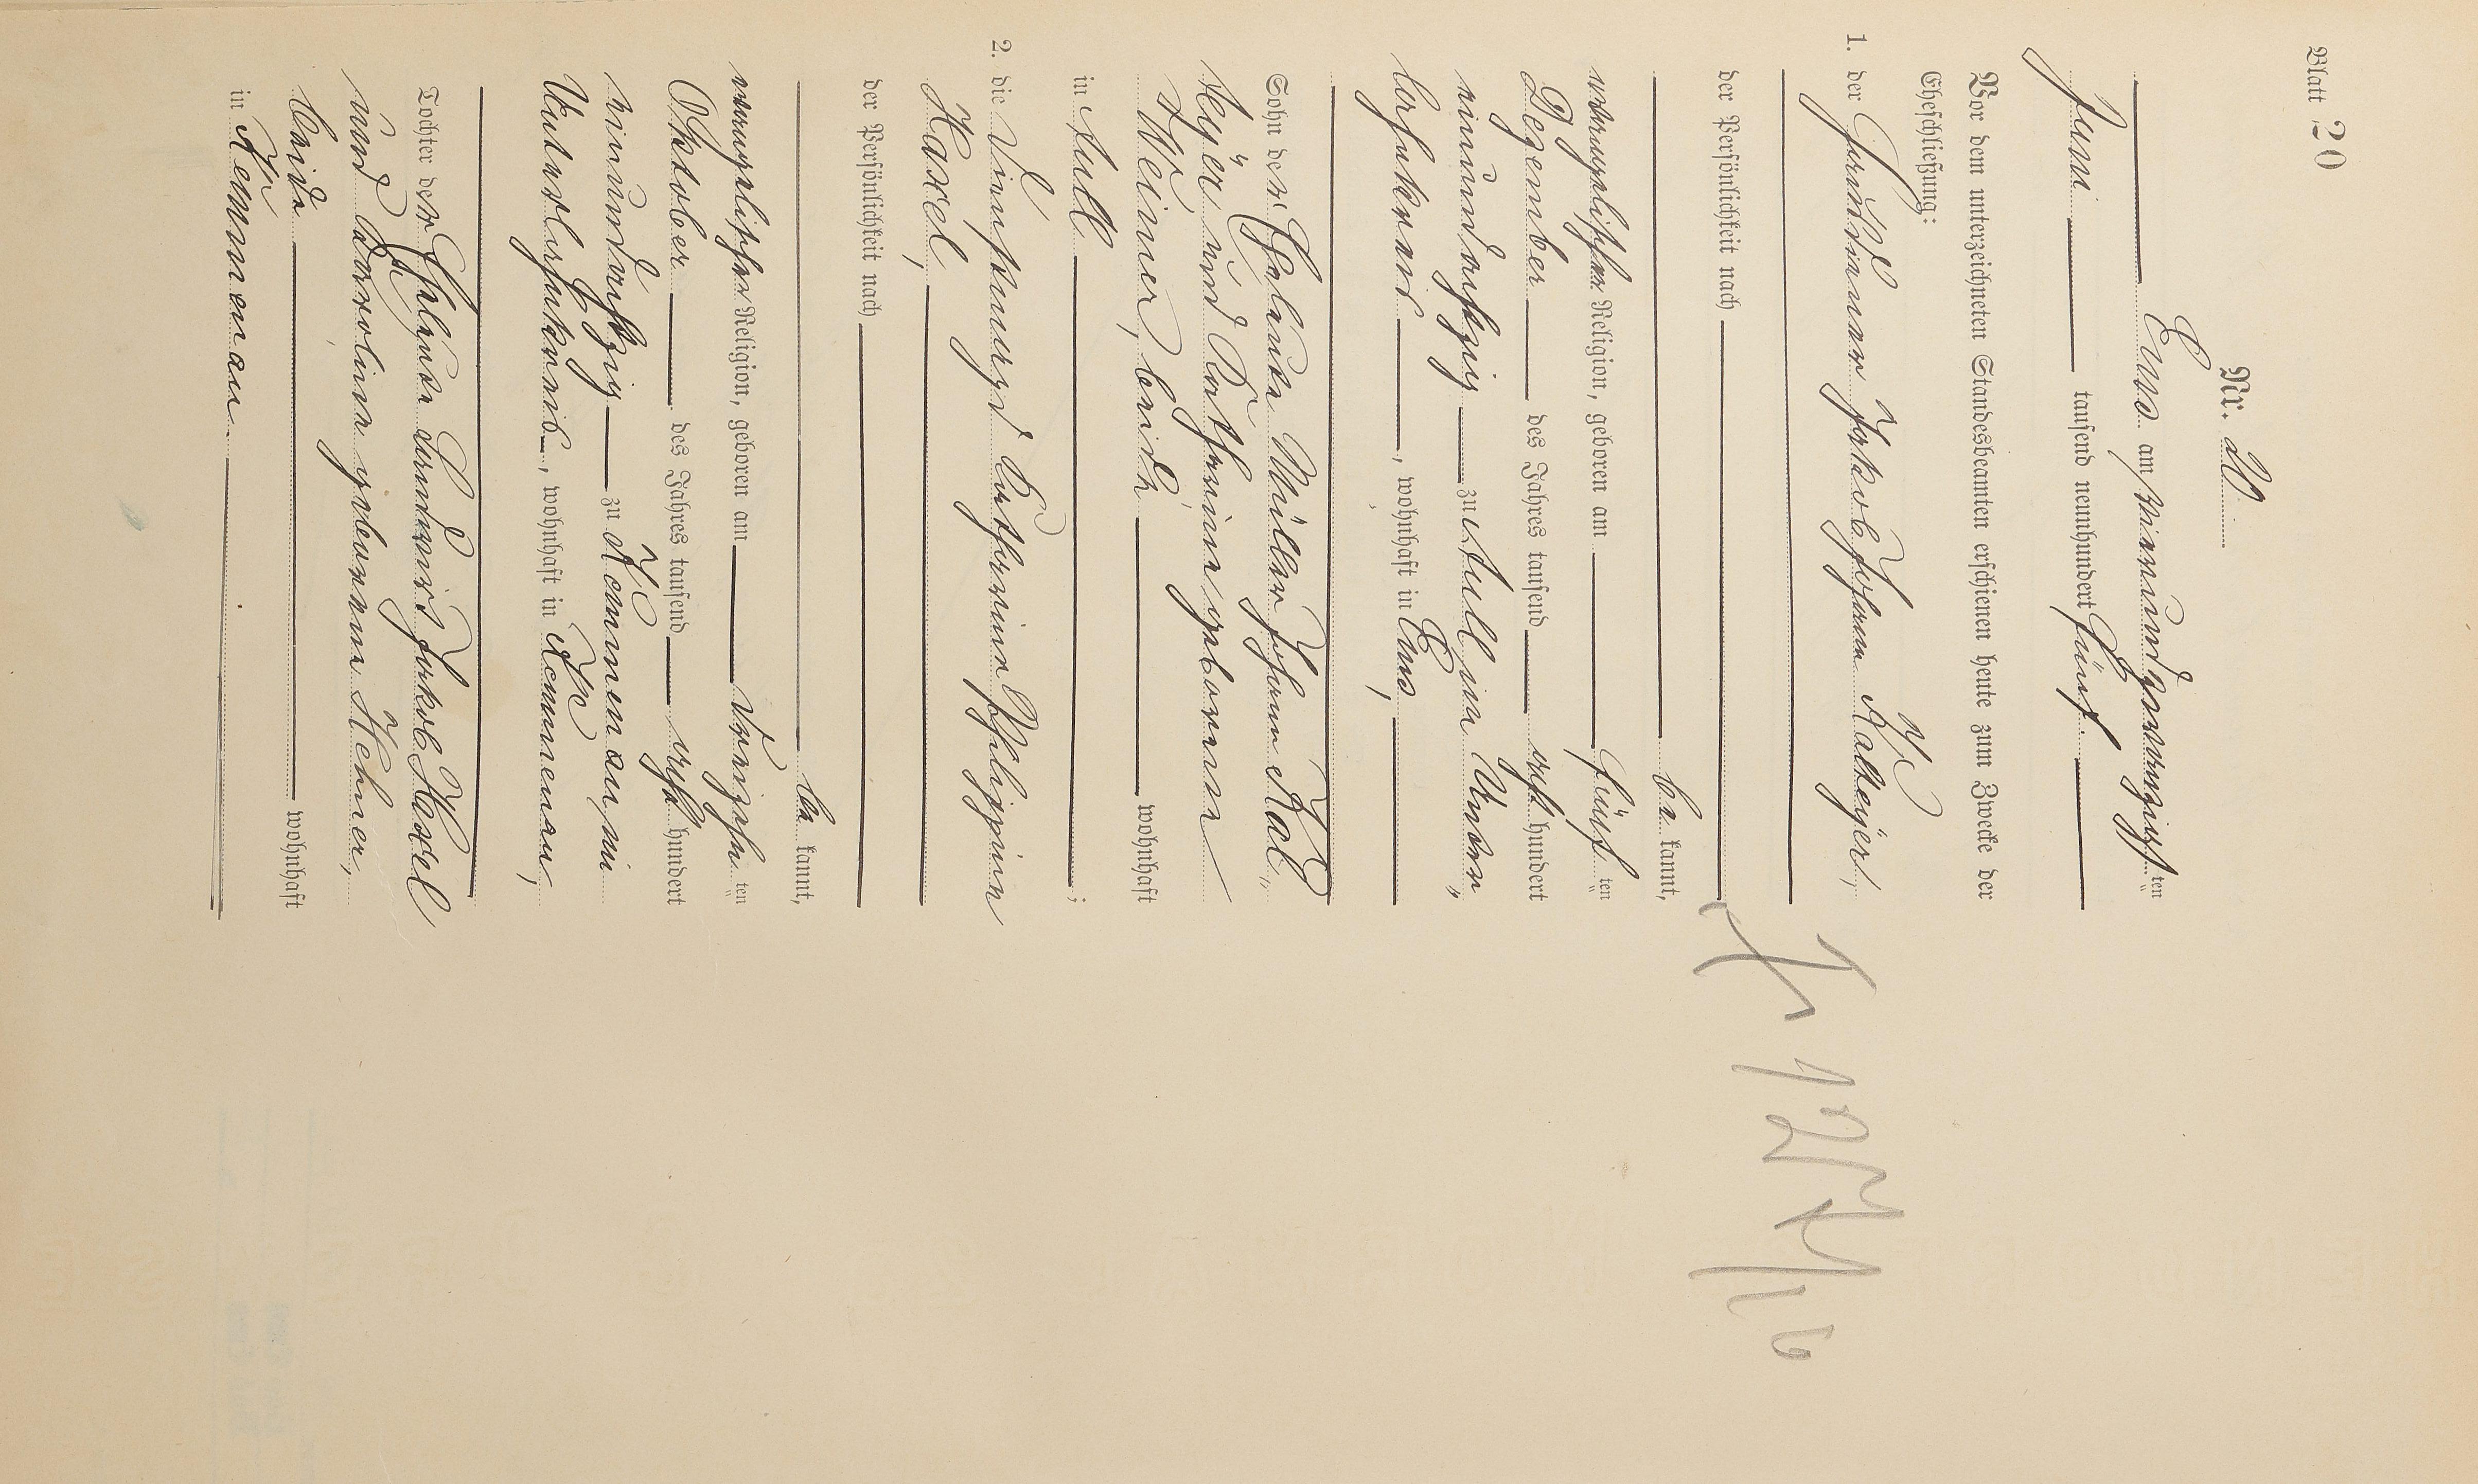 Blatt 20
Nr. 20
Ems am vierundzwanzigsten
Juni tausend neunhundert fünf.
Vor dem unterzeichneten Standesbeamten erschienen heute zum Zwecke der
Eheschließung:
1. der Jakob Johann Kalteyer,
der Persönlichkeit nach
be kannt,
evangelischer Religion, geboren am fünf ten
Dezember des Jahres tausend acht hundert
zu Aull im Unter„
lahnkreis, wohnhaft in Ems,
Sohn der Eheleute Müller Johann Kal„
teyer und Katharina geborenen
Weimer, beide wohnhaft
in Aull ;
2. die Katharina Philippine
Haxel,
der Persönlichkeit nach
be kannt,
evangelischer Religion, geboren am ten
Oktober des Jahres tausend acht hundert
zu Kemmenau, im
Unterlahnkreis, wohnhaft in Kemmenau,
Tochter der Eheleute Landwirt Jakob Haxel
und Karoline geborenen Hehner,
beide wohnhaft
in Kemmenau.